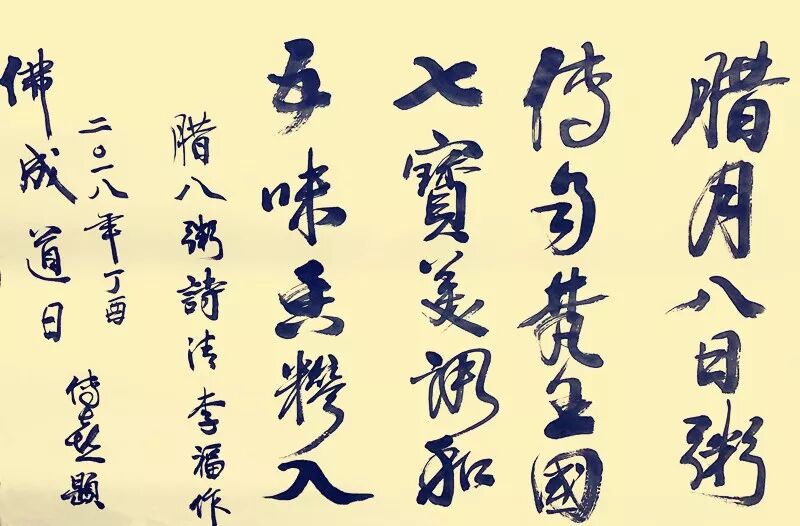 腊月八日粥
傳自梵王國
七寶美調和
五味香糝入
腊八粥詩清李福作
二〇一八年丁酉
佛成道日
傳喜題